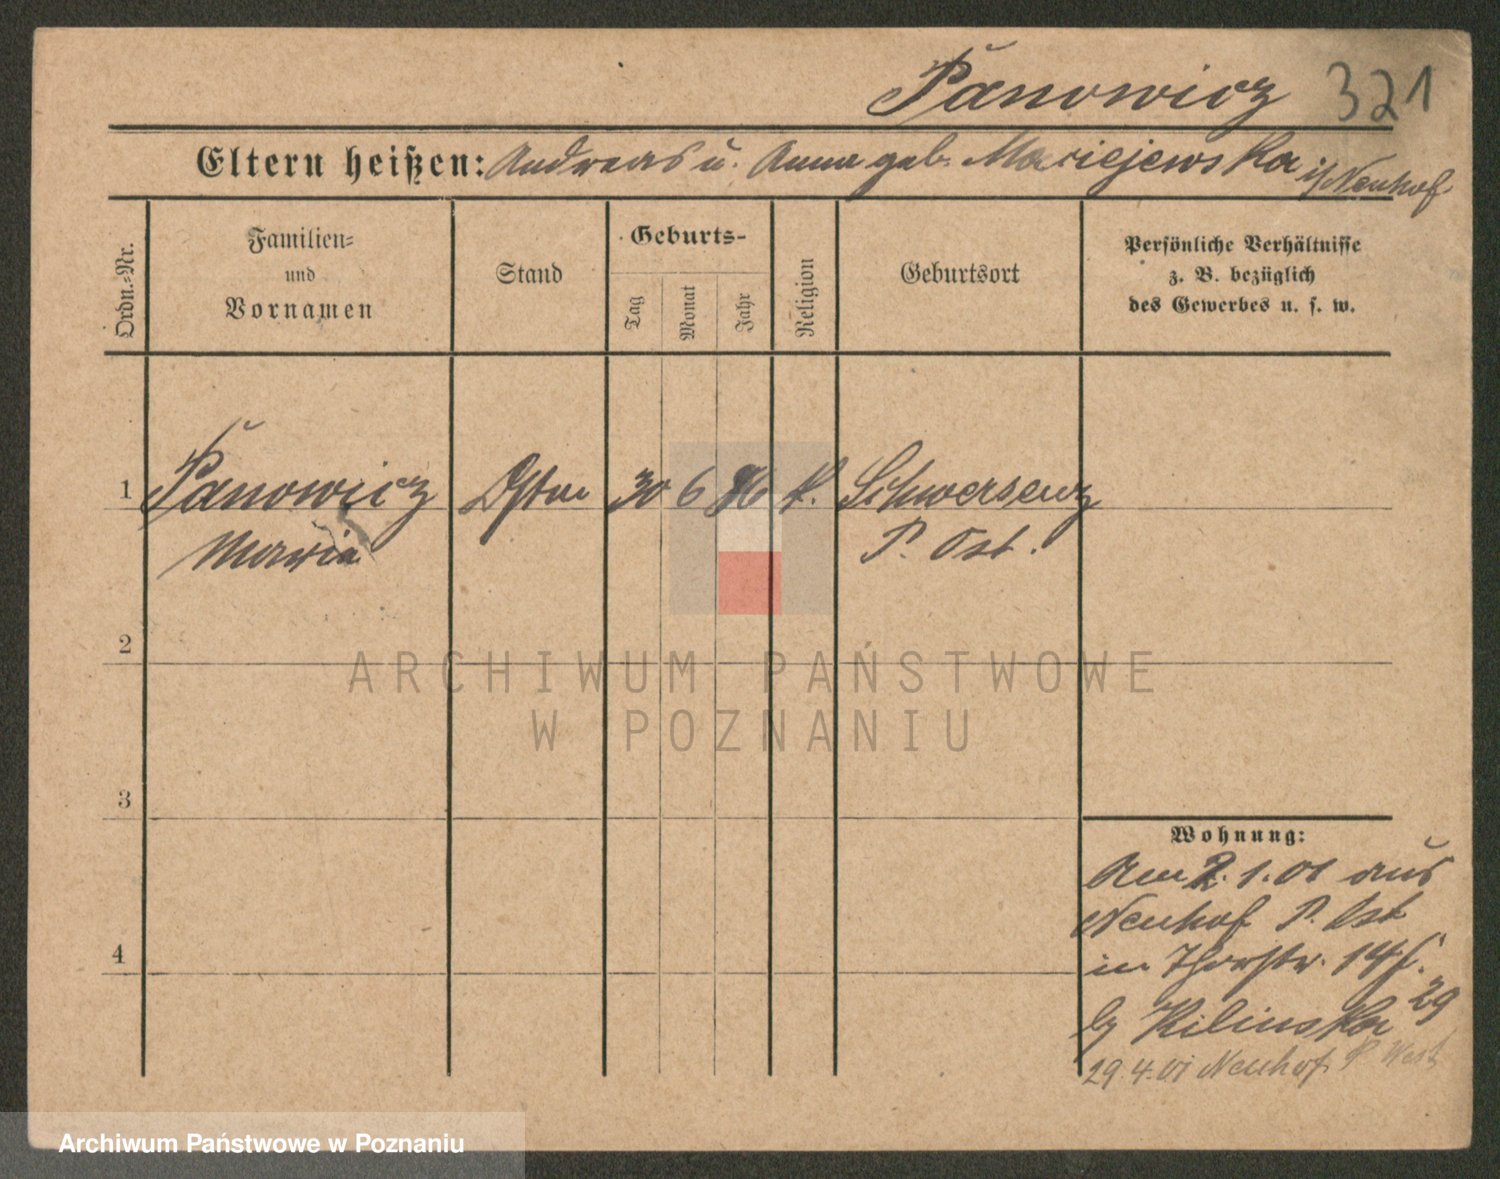 Panowicz 321
Eltern heißen: Andreas u. Anna geb. Maciejewska i/Neuhof
Ordn.-Nr.
Familien-
und
Vornamen
Stand
Geburts-
Tag
Monat
Jahr
Religion
Geburtsort
Persönliche Verhältnisse
z. B. bezüglich
des Gewerbes u. s. w.
1 Panowicz 30 6 86 k. Schwersenz
Maria P. Ost.
2
ARCHIWUM PAŃSTWOWE
W POZNANIU
3
Wohnung:
Am 2.1.01 aus
Neuhof P. Ost
in 14
by Kilinska 29
4
29.4.01 Neuhof P West
Archiwum Państwowe w Poznaniu